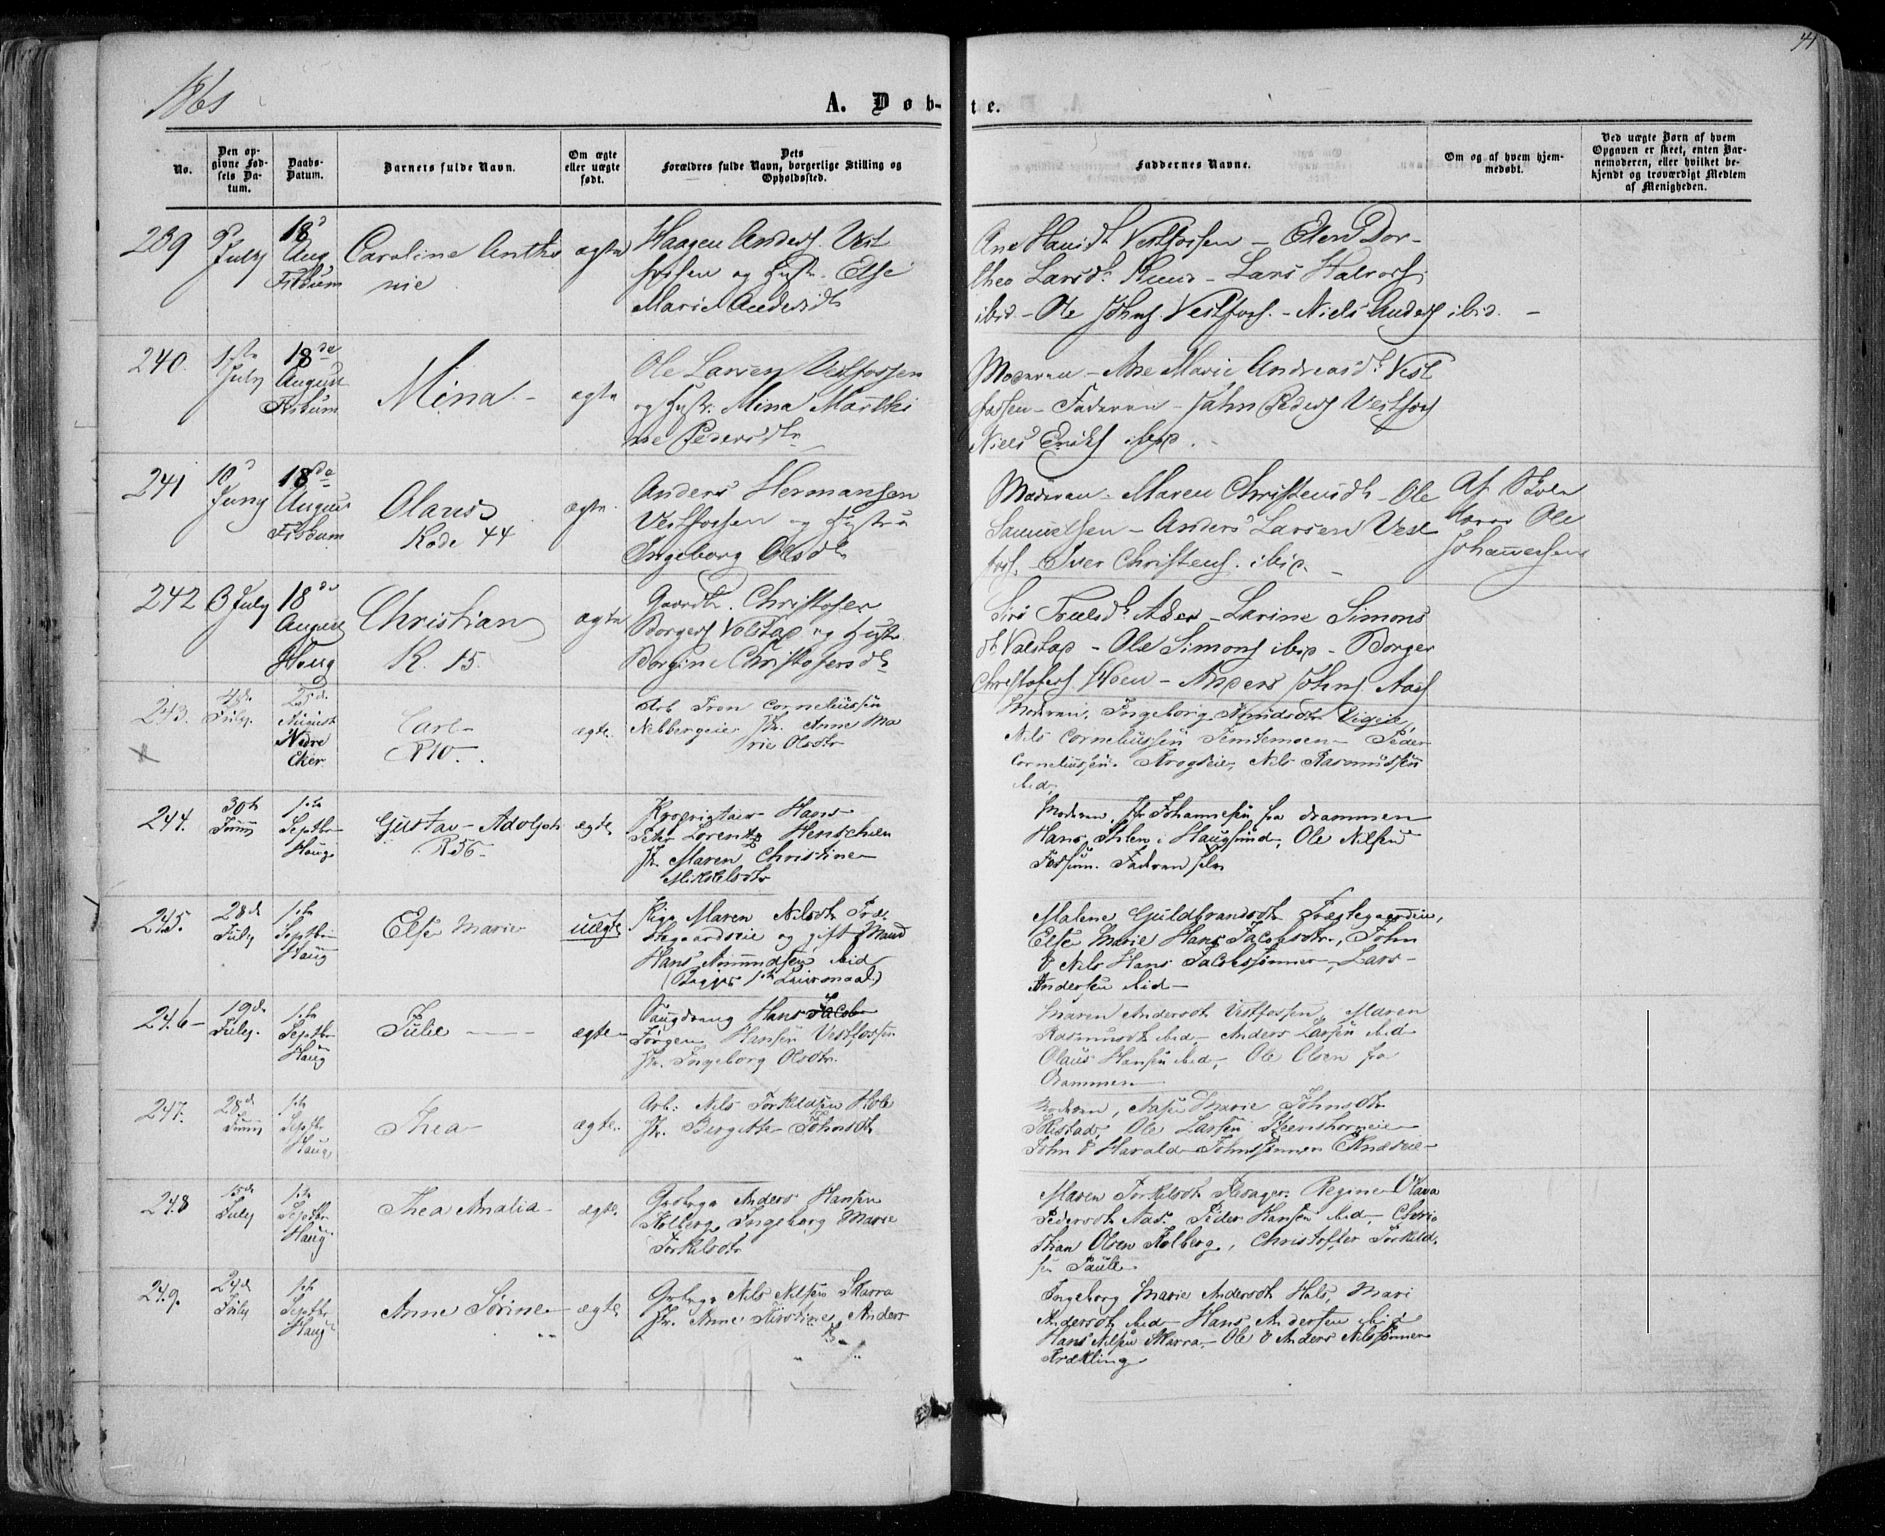 1861
41
A. Døb-
te.
No.
Den op-
givne Fød-
sels Da-
tum.
Daabs-
Datum.
Barnets fulde Navn.
Om ægte
eller uægte
født.
Dets
Forældres fulde Navn, borgerlige Stilling og
Opholdssted.
Faddernes Navne.
Om og af hvem hjem-
medøbt.
Ved uægte Børn af hvem
Opgaven er skeet, enten Bar-
nemoderen, eller hvilket be-
kjendt og troværdigt Medlem
af Menigheden.
239
July
18
Aug
Fiskum
Caroline Antho
nie
ægte
Haagen Anders. Vest
fossen og Hustr. Else
Marie Andersdt
Ane Vestfossen – Elen Dor-
thea Larsdt. Ruud – Lars Halvors.
ibid. – Ole Johns. Vestfoss. – Niels Anders ibid. –
240.
1ste
July
18de
August
Fiskum
Mina –
ægte
Ole Larsen Vestfossen
og Hustr. Mina Marthi
ne Pedersdtr
Moderen – Ane Marie Andreasdt. Vest
fossen – Faderen – John Peders Vestfoss
Niels Eriks ibid.
241
10
Juny
18de
August
Fiskum
Olaus
Rode 44
ægte.
Anders Hermansen
Vestfossen og Hustru
Ingeborg Olsdt
Moderen – Maren Christensdt. – Ole
Samuelsen – Anders Larsen Vest
foss. – Iver Christens. ibid. –
Af Skole
lærer Ole
Johannesen
242
3 July
18de
August
Haug
Christian
R. 15.
ægte
Gaardbr. Christofer
Borgers Volstap og Hustr
Borgine Christofersdt
Siri Truelsdt Aser – Larine Simons
dt Volstap – Ole Simons ibid – Borger
Christofers. Hoen – Anders Johns Aas
243.
4de
July.
25de
August
Nedre
Eker
Carl –
R 10 –
ægte.
Arb Iver Corneliussen
Nebbergeie H. Anne Ma
rie Olsdtr
Moderen, Ingeborg
Nils Corneliussen – Peder
Corneliussen. Krogseie, Nils Rasmussen
ibid.
244.
30te
Juny
1ste
Septbr
Haug
Gustav – Adolph
R 56 –
ægte
Hans
Peter Lorentz Henschien
H. Maren Christine
Mikkelsdtr
Moderen, Johannesen fra Drammen
Hans Ihlen i Haugsund, Ole Nilsen
Fossum. Faderen selv
245.
28de
July
1ste
Septbr
Haug
Else Marie
uægte
Pige Maren Nilsdtr Præ-
stegaardseie og gift Mand
Hans Amundsen ibid
(Begges 1ste Leiermaal)
Malene Guldbrandsdtr Præstegaardseie,
Else Marie Hans Jacobsdtr, John
& Nils Hans Jacobssønner, Lars
Andersen ibid –
246 –
19de
July.
1ste
Septbr
Haug
Julie – – –
ægte –
Saugdreng Hans Jacob
Jørgen Hansen Vestfossen
H. Ingeborg Olsdtr.
Maren Andersdt Vestfossen, Maren
Rasmusdt ibid – Anders Larsen ibid
Olaus Hansen ibid, Ole Olsen fra
Drammen
247.
28de
Juny
1ste
Septbr
Haug
Thea –
ægte.
Arb: Nils Torkildsen Hole
H. Birgitte Johnsdt.
Moderen, Aase Marie Johnsdtr
Skistad, Ole Larsen
John & Harald Johnssønner
248
15de
July
1ste
Septbr
Haug
Thea Amalia –
ægte.
Grbrgr Anders Hansen
Kolberg, Ingeborg Marie
Torkilsdtr
Maren Torkilsdt Regine Olava
Pedersdt Aas. Peder Hansen ibid, Chris
tian Olsen Kolberg, Christoffer Torkild-
sen
249.
24de
July
1ste
Septbr
Haug
Anne Sørine –
ægte
Grbrgr Nils Nilsen Skarra
H. Anne Kirstine Anders
D –
Ingeborg Marie Andersdt Hals, Mari
Andersdt ibid – Hans Andersen ibid
Hans Nilsen Skarra, Ole & Anders Nilssønner
Krækling